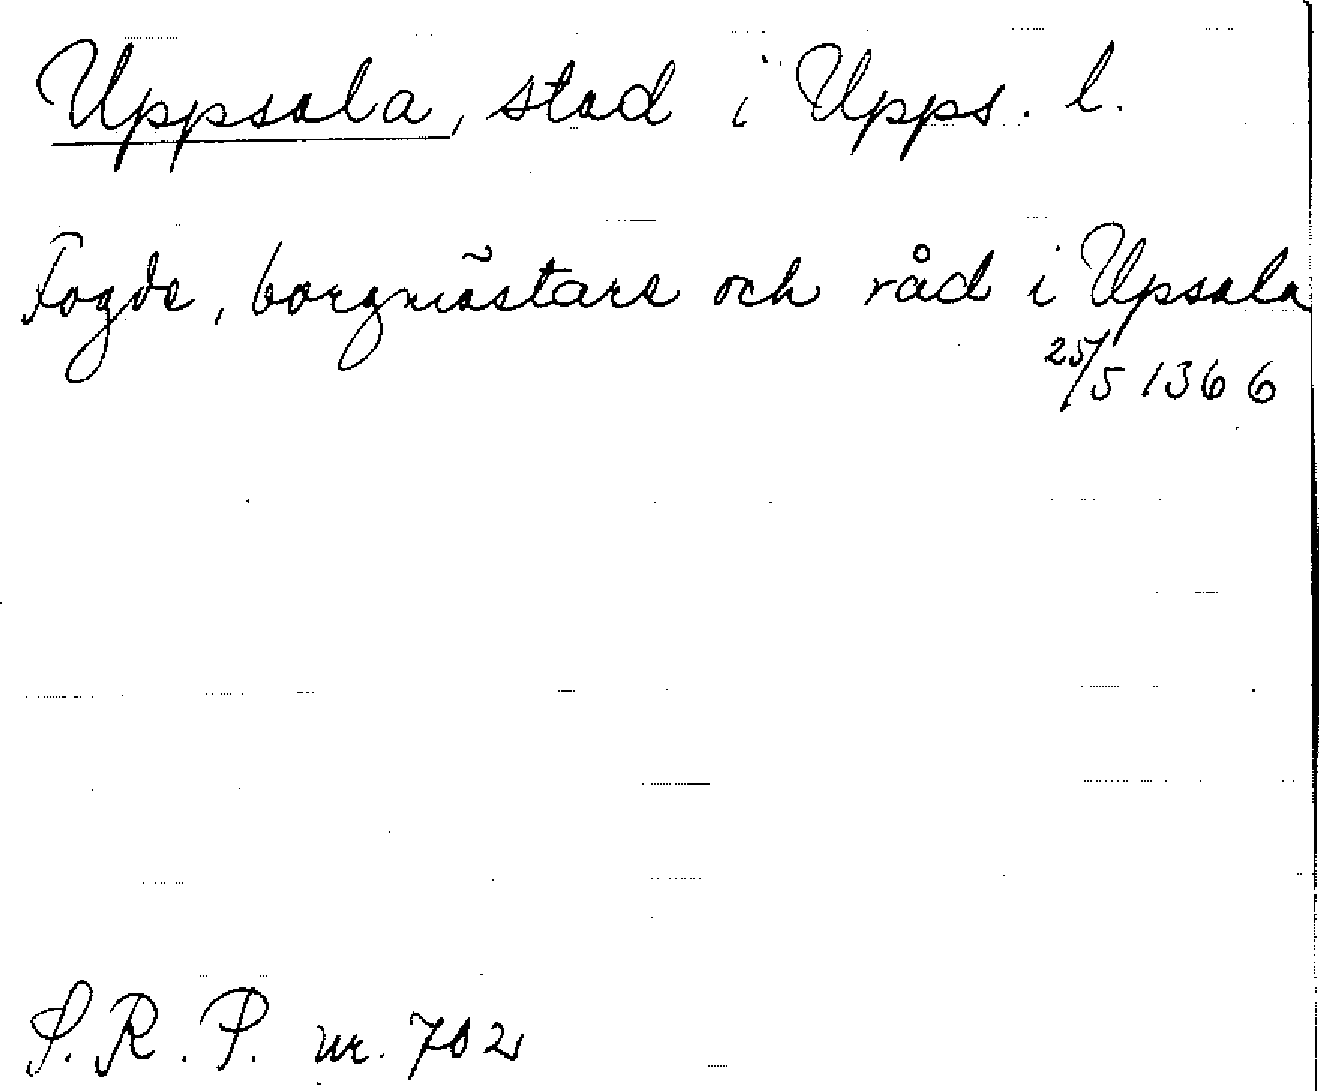 Uppsala, stad i Upps. l.
Fogde, borgmästare och råd i Upsala
25/5 1366
S. R. P. nr. 702